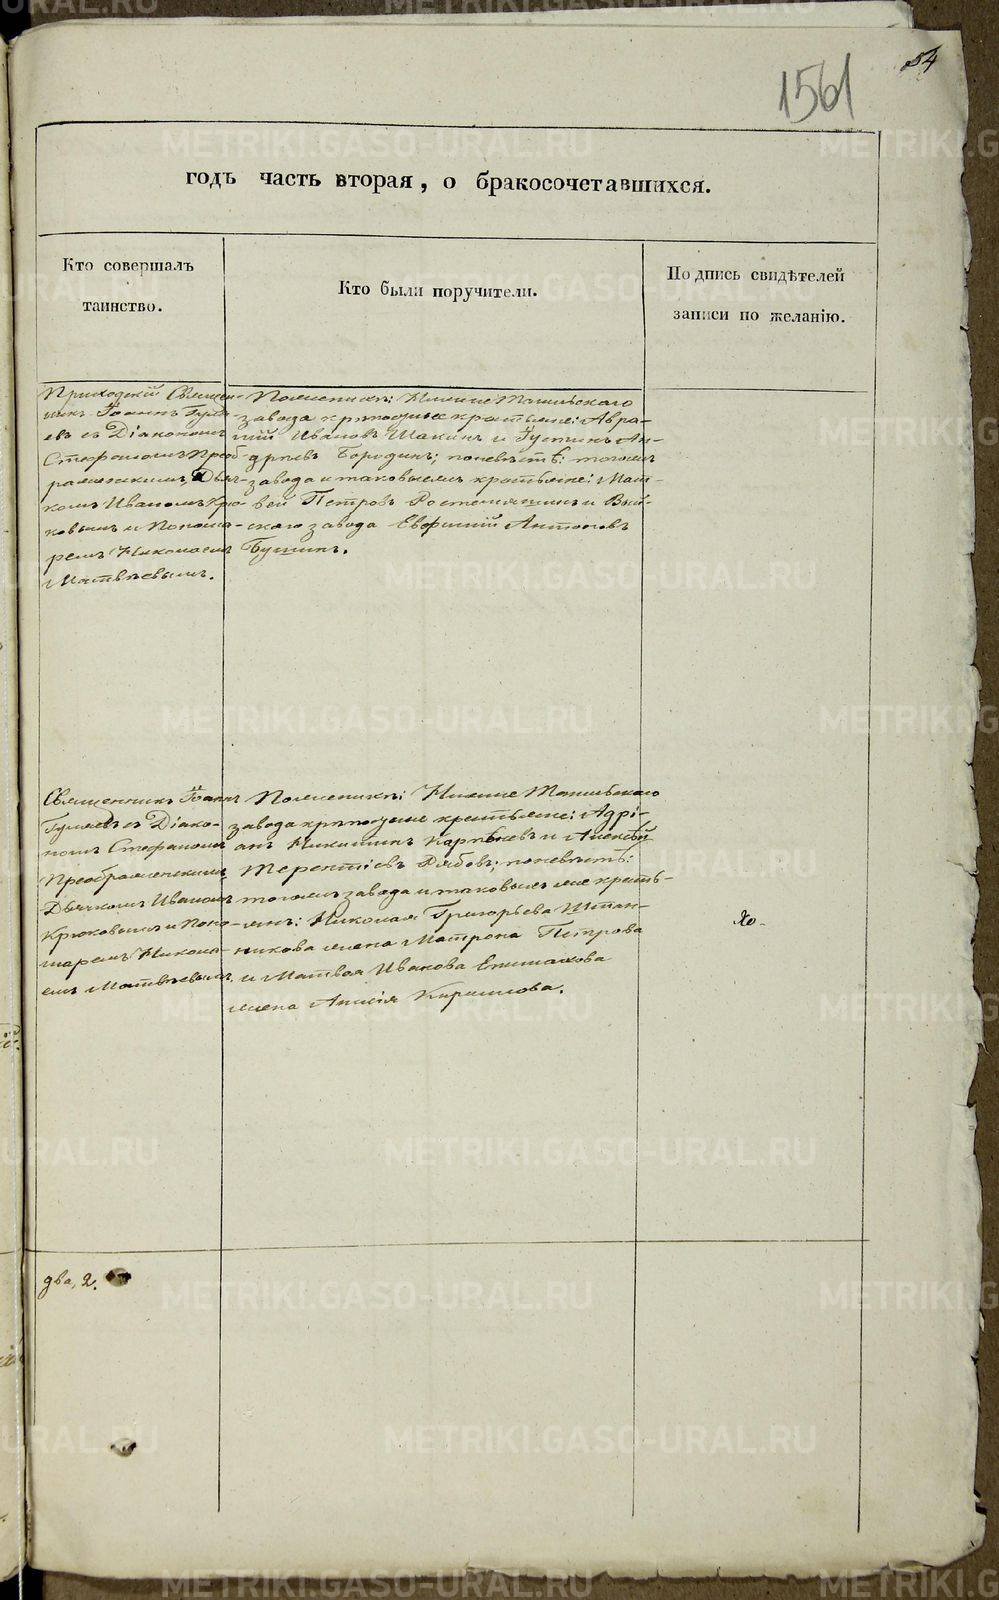 54
1561
годъ часть вторая, о бракосочетавшихся.
Кто совершалъ
таинство.
Кто были поручители.
Подпись свидѣтелей
записи по желанію.
Приходскій Священ-
никъ Іоаннъ Гуля-
евъ съ Діакономъ
Стефаномъ Преоб-
раженскимъ, Дьяч-
комъ Иваномъ Крю-
ковымъ и Понома-
ремъ Николаемъ
Матвѣевымъ.
По женихѣ: Нижне Тагильскаго
завода крѣпостные крестьяне: Авра-
мій Ивановъ Шакинъ и Густинъ Ан-
дреевъ Бородинъ; по невѣстѣ: тогожъ
завода и таковыежъ крестьяне: Мат-
вей Петровъ и Вый-
скаго завода Евфимій Антоновъ
Бушинъ.
Священникъ Іоаннъ
Гуляевъ съ Діако-
номъ Стефаномъ
Преображенскимъ
Дьячкомъ Иваномъ
Крюковымъ и Поно-
маремъ Никола-
емъ Матвѣевымъ.
По женихѣ: Нижне Тагильскаго
завода крѣпостные крестьяне: Адрі-
анъ Никитинъ и Алексѣй
Терентіевъ Рябовъ; по невѣстѣ:
тогожъ завода и таковыхъ же кресть-
янъ: Николая Григорьева Штан-
никова жена Матрона Петрова
и Матвея Иванова
жена Анисія Кирилова.
два, 2.
METRIKI.GASO-URAL.RU